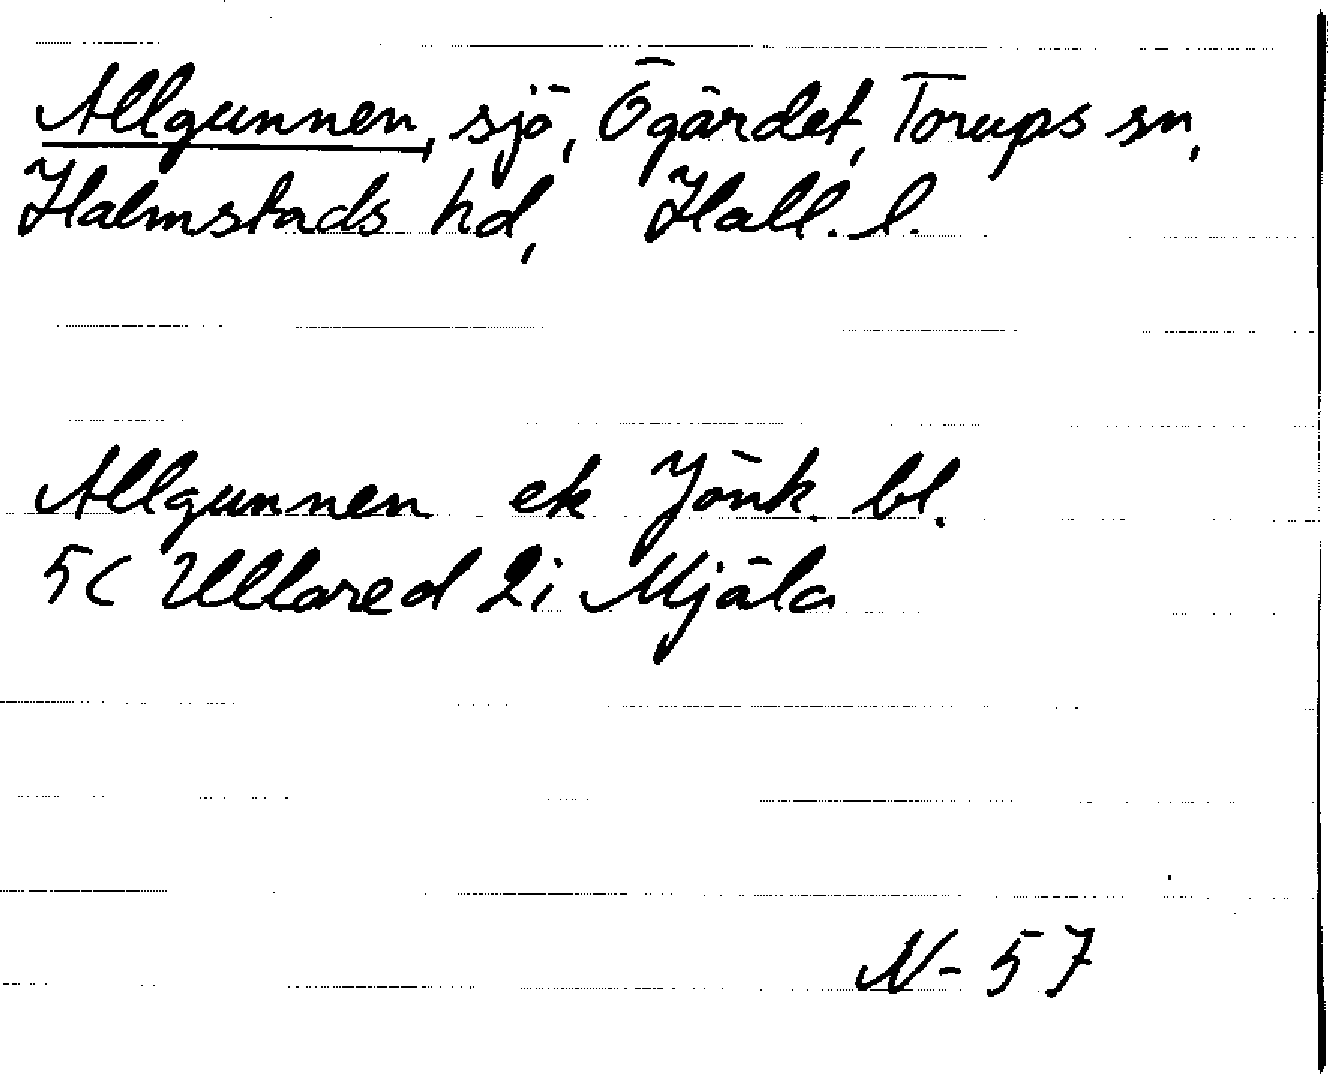 Allgunnen, sjö, Ögärdet, Torups sn,
Halmstads hd, Hall. l.
Allgunnen ek Jönk. bl.
5C Ullared 2i Mjäla
N-57